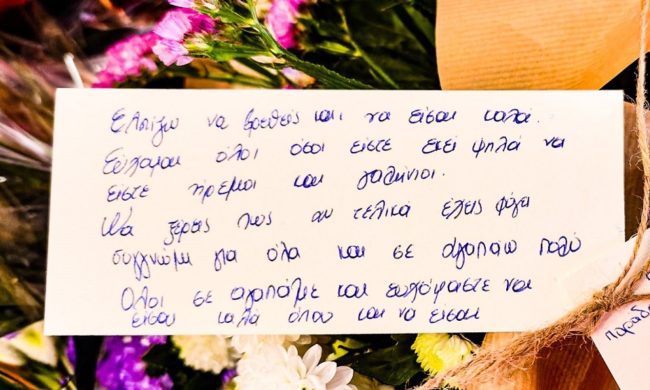 Ελπίζω να βρεθείς και να είσαι καλά.
Εύχομαι όλοι όσοι είστε εκεί ψηλά να
είστε ήρεμοι και γαλήνιοι.
Να ξέρεις πως αν τελικά έχεις φύγει
συγγνώμη για όλα και σε αγαπάω πολύ
Όλοι σε αγαπάμε και ευχόμαστε να
είσαι καλά όπου και να είσαι